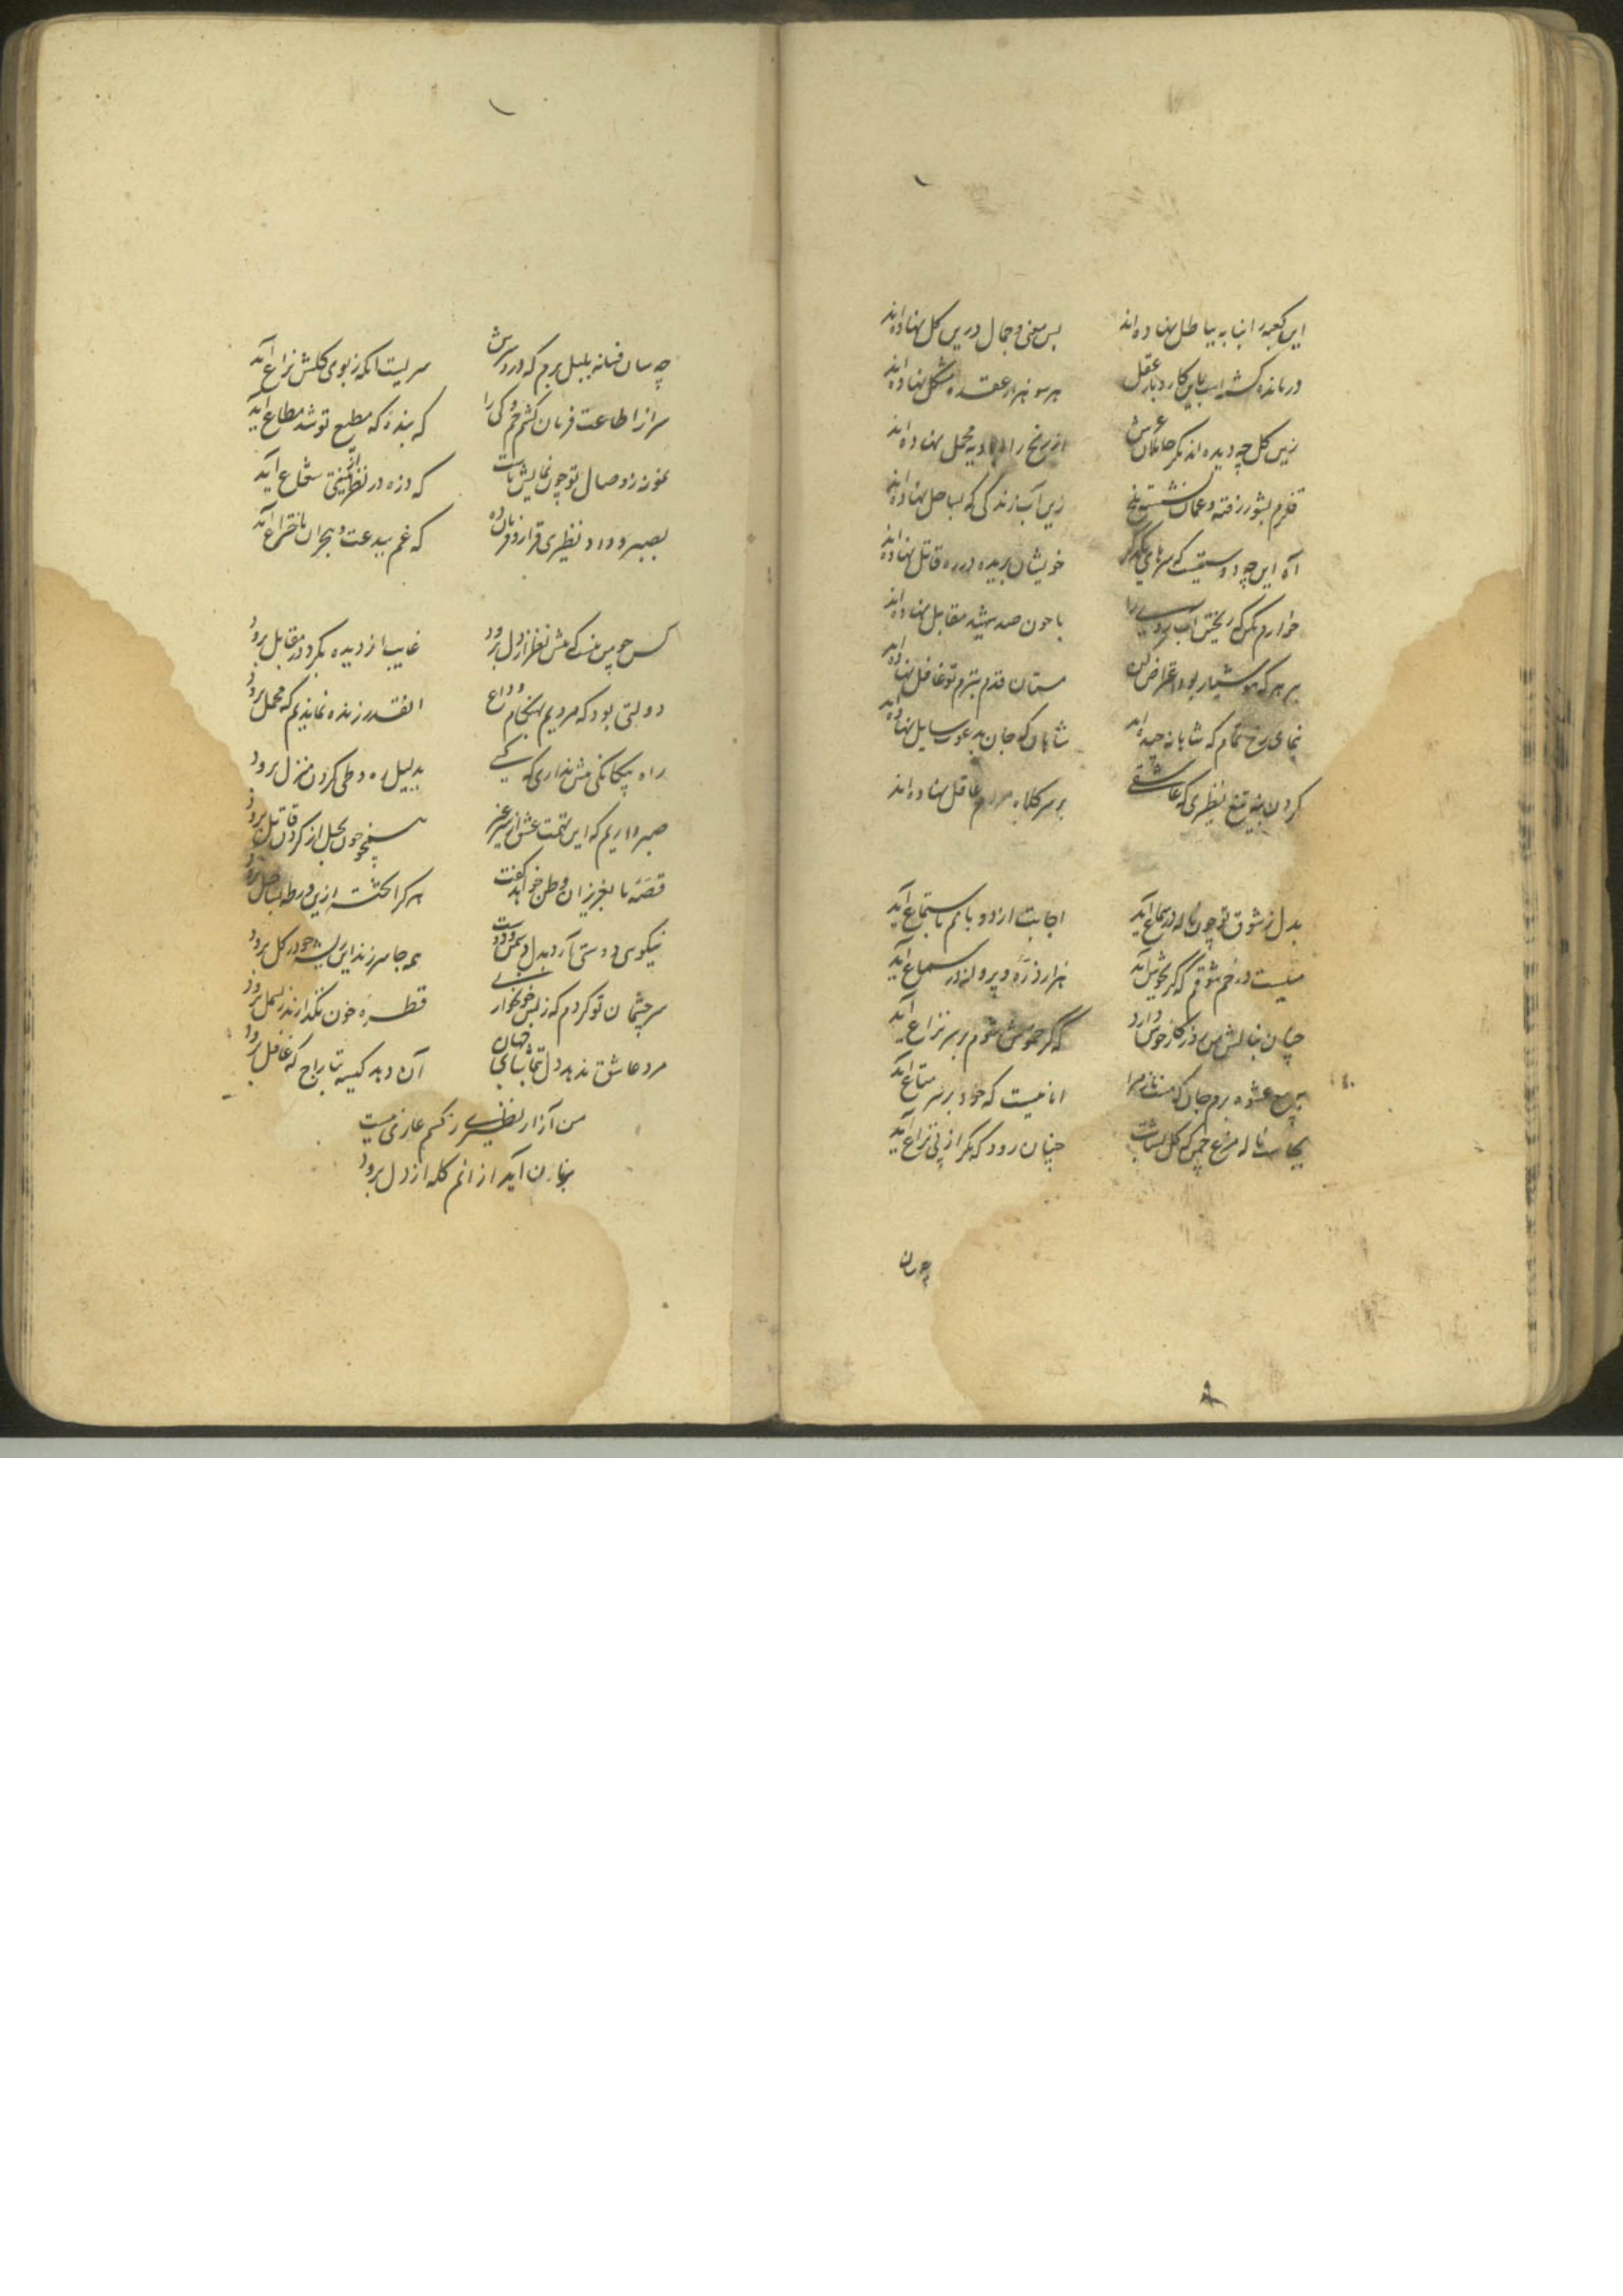 این کعبه را بنا نه بباطل نهاده اند بس معنی و جمال درین گل نهاده اند
درمانده گشته اند باین کاروبار عقل هر سو هزار عقده مشکل نهاده اند
زین گل چه دیده اند مگر حاملان عرش از رنج راه بادیه محمل نهاده اند
قلزم بشور رفته و عمان نشسته تلخ زین آب زندگی که بساحل نهاده اند
آه این چه دوستیست که سرهای یکدگر خویشان بریده در ره قاتل نهاده اند
خوارم مکن که ریختن آب روی را با خون صد شهید مقابل نهاده اند
بر هر که هوشیار بود اعتراض کن مستان قدم ببزم تو غافل نهاده اند
بنمای رخ تمام که شاهانه
شاهان که جان سایل نهاده اند
گردن بنه بتیغ نظیری که عاشقی بر سر کلاه مردم عاقل نهاده اند
بدل ز شوق تو چون ناله در سماع آید اجابت از در و بامم باستماع آید
میست در خم شوقم که گر بجوش آید هزار ذره و پروانه در سماع آید
چنان دارد که گر خموش شوم بر سر نزاع آید
بهیچ عشوه برم جان که هست ناز مرا
بجاست ناله مرغ چمن که گل بشتاب چنان رود که مگر از پی نزاع آید
چون
چه سان فسانه بلبل برم که دردسرش سریست کز بوی گلش نزاع آید
سر از اطاعت فرمان کشم کی را که بنده که مطیع تو شد مطاع آید
نمونه ز وصال تو چون نمایش ماست که ذره در نظر شعاع آید
بصبر و نظیری قرار ده که غم ببدعت و هجران باختراع آید
کس چو من نیست که پیش نظر از دل برود غایب از دیده نگردد ز مقابل برود
دولتی بود که مردیم بهنگام وداع آنقدر زنده نماندیم که محمل برود
راه بیگانگی پیش نداری که کسی بدلیل ره و طی کردن منزل برود
صبر داریم که این تهمت عشق از سر خون بحل از گردن قاتل برود
قصه ما بعزیزان وطن خواهد گفت هر کرا تخته ازین ورطه بساحل برود
نیکویی دوستی آرد بدل دشمن و دوست همه جا سر زند این ریشه چو در گل برود
سر چشمان تو گردم که ز بس خونخوارند قطره خون نگذارند ز بسمل برود
مرد عاشق ندهد دل بتماشای جهان آن دهد کیسه بتاراج که غافل برود
من آزار نظیری ز کسم عاری نیست
بزبان آید از آنم گله از دل برود